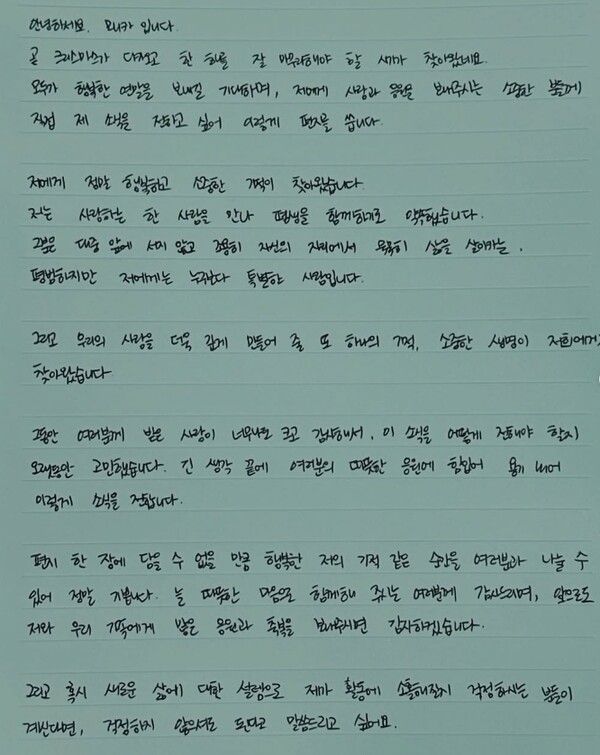 안녕하세요. 모니카 입니다.
곧 크리스마스가 다가오고 한 해를 잘 마무리해야 할 시기가 찾아왔네요.
모두가 행복한 연말을 보내길 기대하며, 저에게 사랑과 응원을 보내주시는 소중한 분들께
직접 제 소식을 전하고 싶어 이렇게 편지를 씁니다.
저에게 정말 행복하고 소중한 기적이 찾아왔습니다.
저는 사랑하는 한 사람을 만나 평생을 함께하기로 약속했습니다.
그분은 대중 앞에 서지 않고 조용히 자신의 자리에서 묵묵히 삶을 살아가는,
평범하지만 저에게는 누구보다 특별한 사람입니다.
그리고 우리의 사랑을 더욱 깊게 만들어 줄 또 하나의 기적, 소중한 생명이 저희에게
찾아왔습니다
그동안 여러분께 받은 사랑이 너무나도 크고 감사해서, 이 소식을 어떻게 전해야 할지
오래동안 고민했습니다. 긴 생각 끝에 여러분의 따뜻한 응원에 힘입어 용기 내어
이렇게 소식을 전합니다.
편지 한 장에 담을 수 없을 만큼 행복한 저의 기적 같은 순간을 여러분과 나눌 수
있어 정말 기쁩니다. 늘 따뜻한 마음으로 함께해 주시는 여러분께 감사드리며, 앞으로도
저와 우리 가족에게 많은 응원과 축복을 보내주시면 감사하겠습니다.
그리고 혹시 새로운 삶에 대한 설렘으로 제가 활동에 소홀해질지 걱정하시는 분들이
계신다면, 걱정하지 않으셔도 된다고 말씀드리고 싶어요.